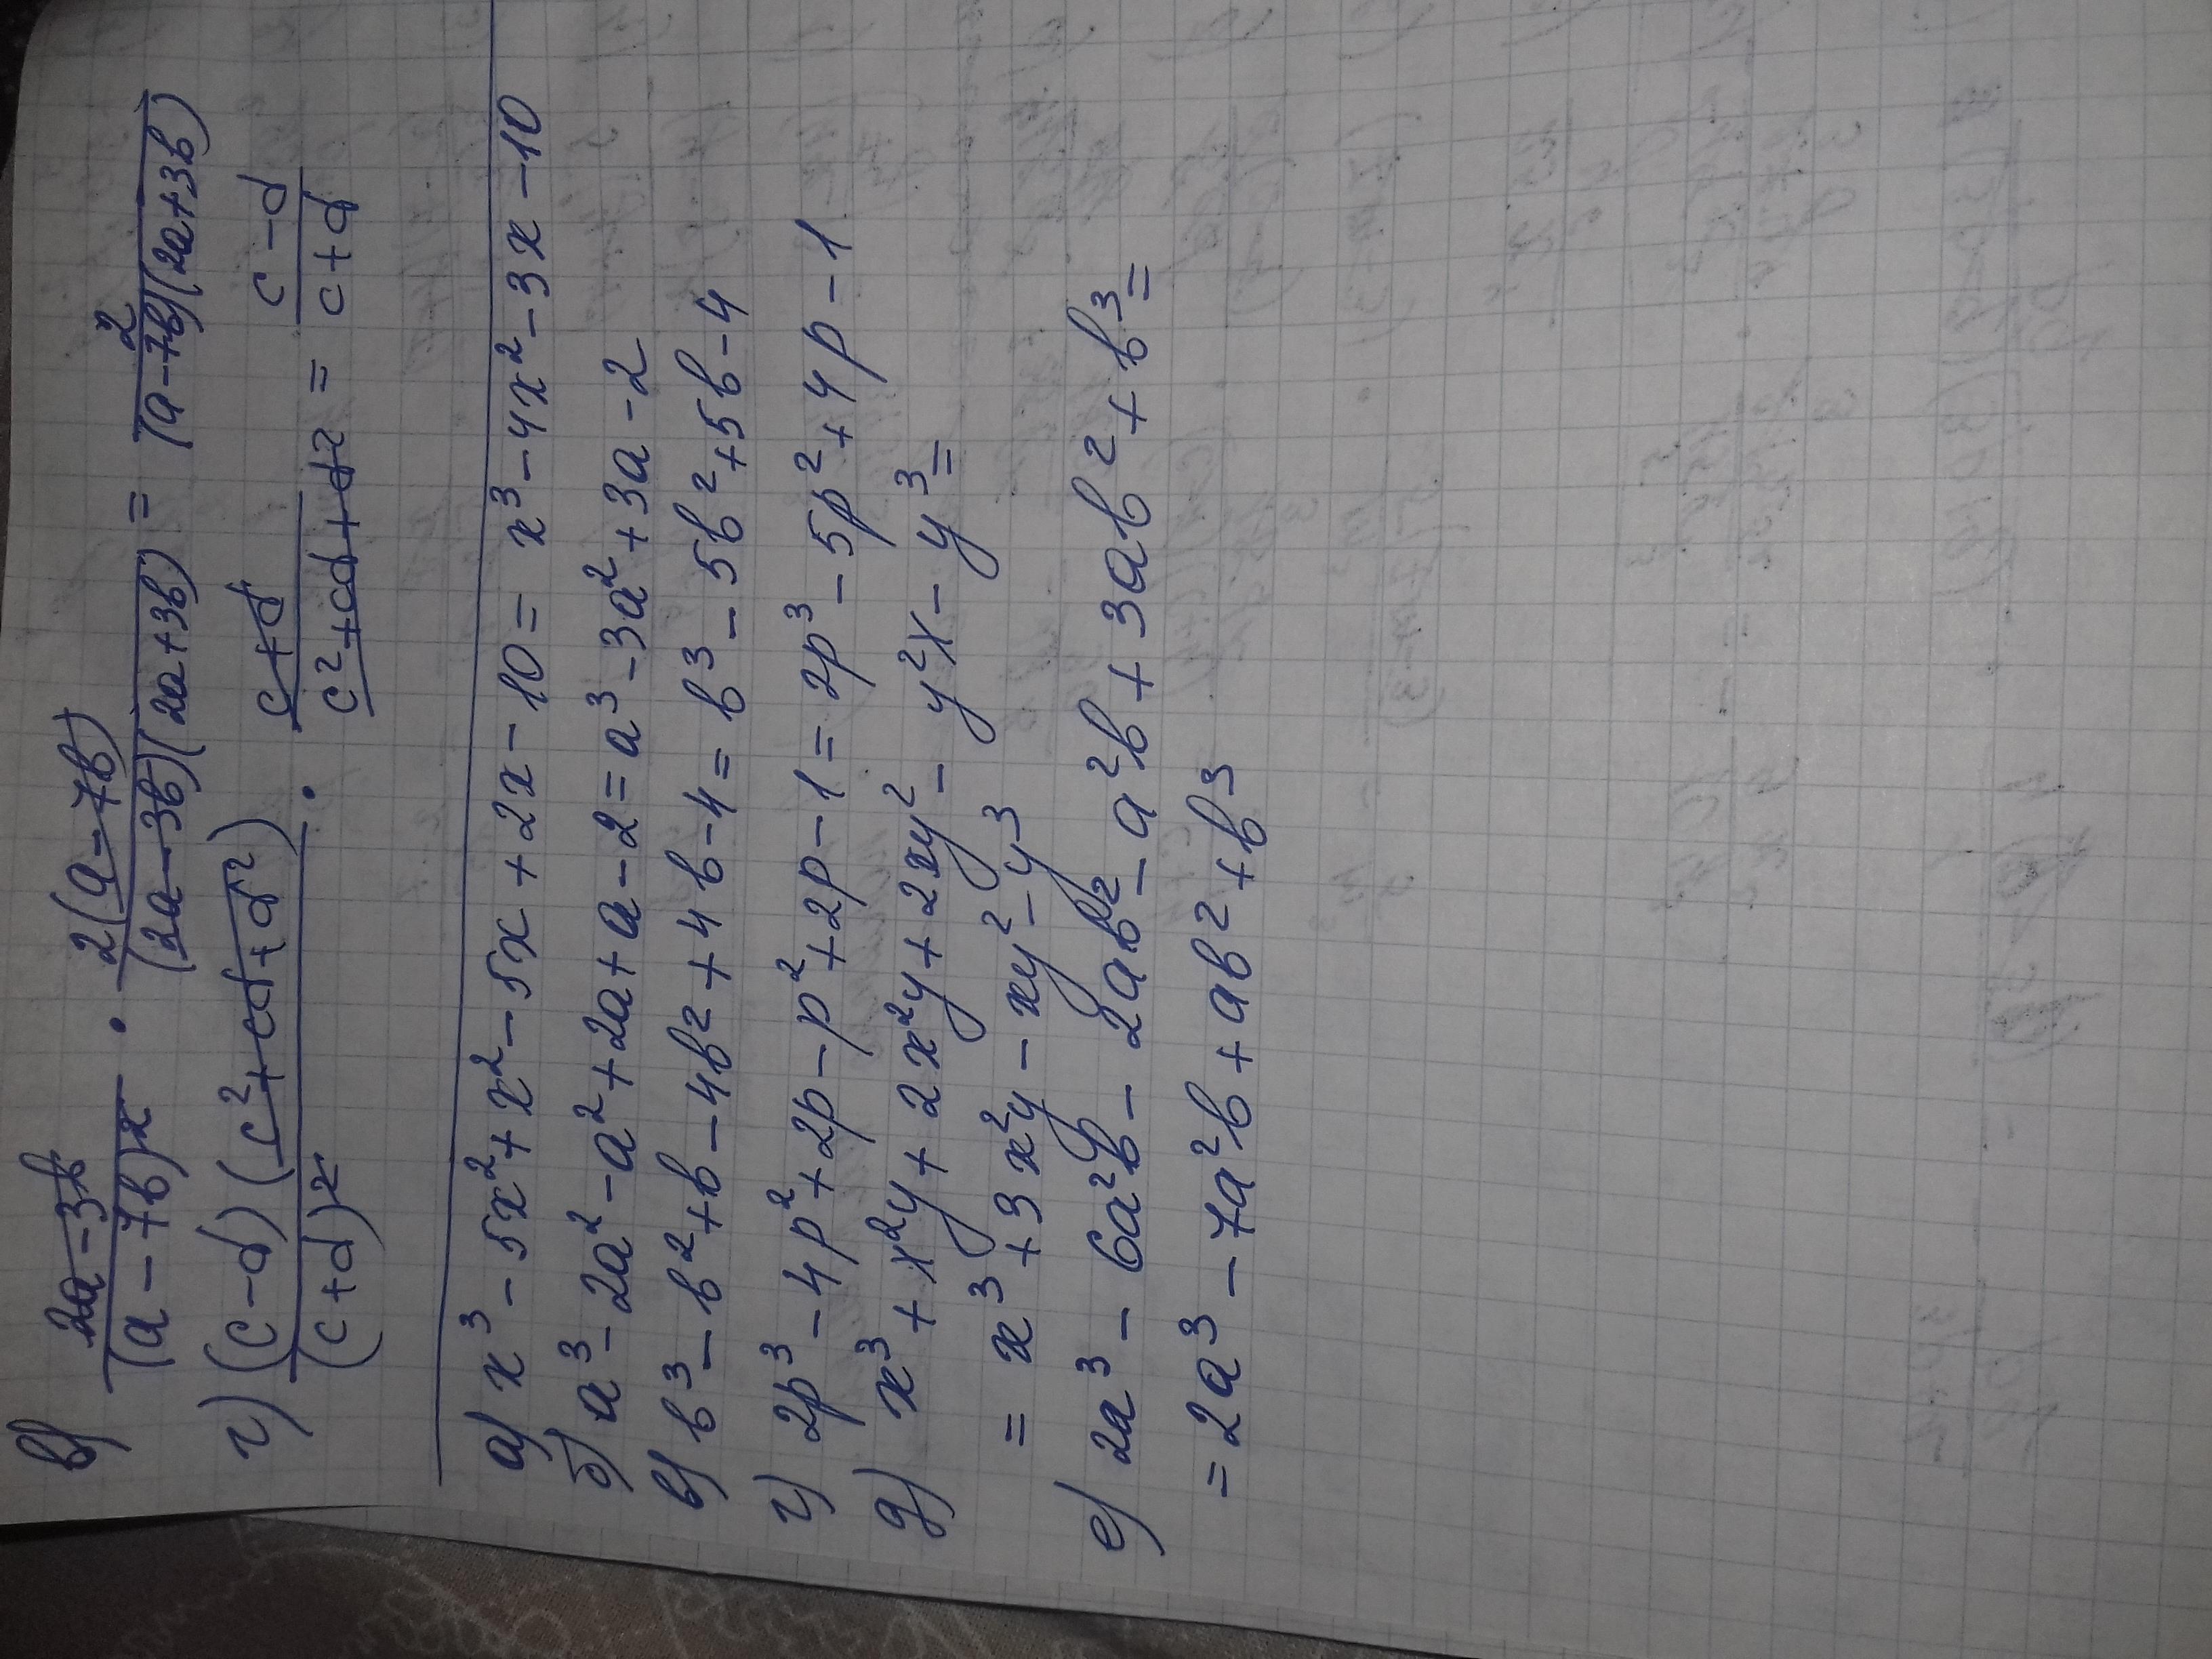 в) 2a-3b/(a-7b)² · 2(a-7b)/(2a-3b)(2a+3b) = 2/(a-7b)(2a+3b)
г) (c-d)(c²+cd+d²)/(c+d)² · c+d/c²+cd+d² = c-d/c+d
а) x³-5x²+x²-5x+2x-10= x³-4x²-3x-10
б) a³-2a²-a²+2a+a-2=a³-3a²+3a-2
в) b³-b²+b-4b²+4b-4=b³-5b²+5b-4
г) 2p³-4p²+2p-p²+2p-1=2p³-5p²+4p-1
д) x³+x²y+2x²y+2xy²-y²x-y³=
= x³+3x²y-xy²-y³
е) 2a³-6a²b-2ab²-a²b+3ab²+b³=
=2a³-7a²b+ab²+b³